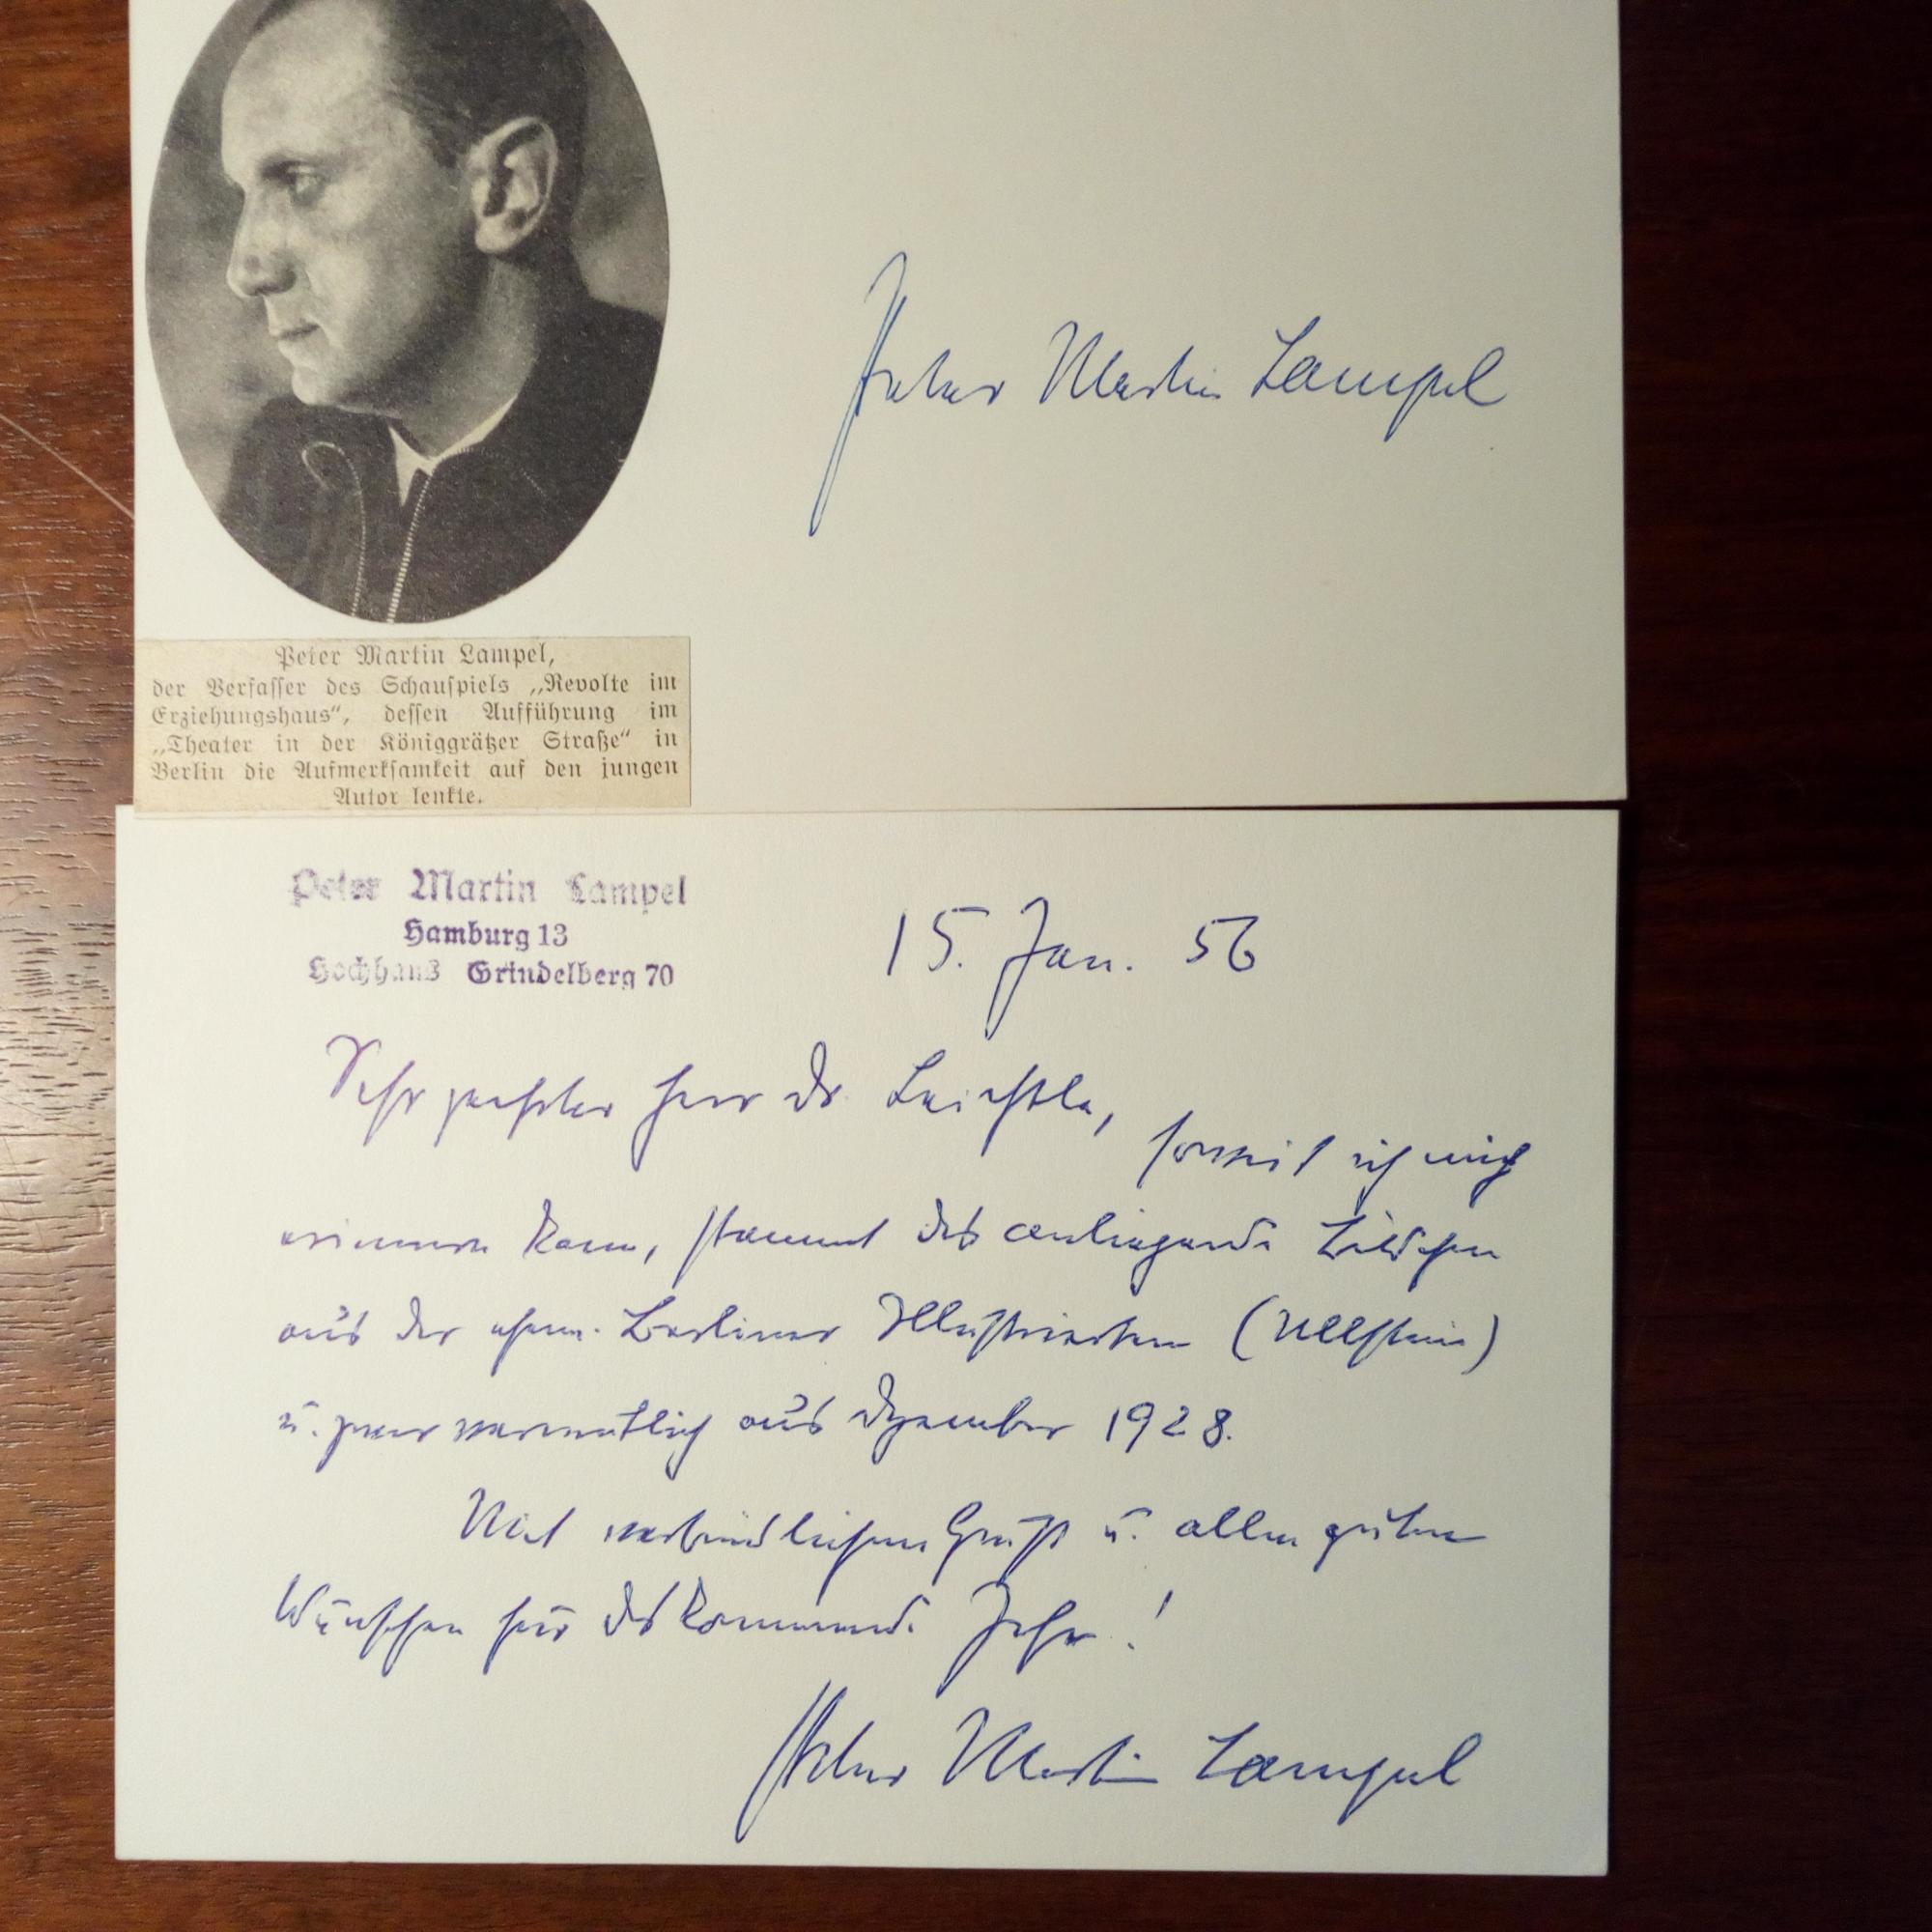 Peter Martin Lampel
Peter Martin Lampel,
der Verfasser des Schauspiels „Revolte im
Erziehungshaus“, dessen Aufführung im
„Theater in der Königgrätzer Straße“ in
Berlin die Aufmerksamkeit auf den jungen
Autor lenkte.
Peter Martin Lampel
Hamburg 13
Hochhaus Grindelberg 70
15. Jan. 56
Sehr geehrter Herr Dr.
soweit ich mich
erinnern kann, stammt das anliegende Bildchen
aus der ehem. Berliner Illustrierten (Ullstein)
u. zwar vermutlich aus Dezember 1928.
Mit verbindlichem Gruß u. allen guten
Wünschen für das kommende Jahr!
Peter Martin Lampel